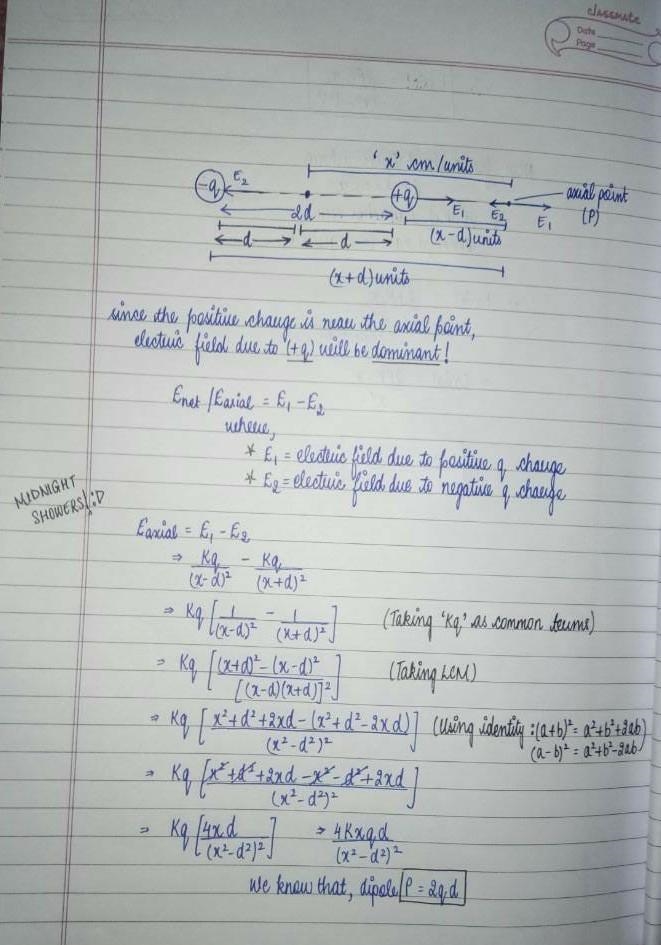 classmate
Date
Page
'x' cm/units
-q E₂ +q E₁ E₂ E₁ axial point (P)
2d
d d (x-d)units
(x+d)units
since the positive charge is near the axial point,
electric field due to (+q) will be dominant!
Enet/Eaxial = E₁ - E₂
where,
* E₁ = electric field due to positive q charge
* E₂ = electric field due to negative q charge
MIDNIGHT
SHOWERS! :D
Eaxial = E₁ - E₂
⇒ Kq/(x-d)² - Kq/(x+d)²
⇒ Kq [1/(x-d)² - 1/(x+d)²] (Taking 'Kq' as common terms)
⇒ Kq [(x+d)² - (x-d)²/[(x-d)(x+d)]²] (Taking LCM)
⇒ Kq [x²+d²+2xd-(x²+d²-2xd)/(x²-d²)²] (Using identity : (a+b)² = a²+b²+2ab
(a-b)² = a²+b²-2ab)
⇒ Kq [x²+d²+2xd-x²-d²+2xd/(x²-d²)²]
⇒ Kq [4xd/(x²-d²)²] ⇒ 4Kxqd/(x²-d²)²
We know that, dipole P = 2qd